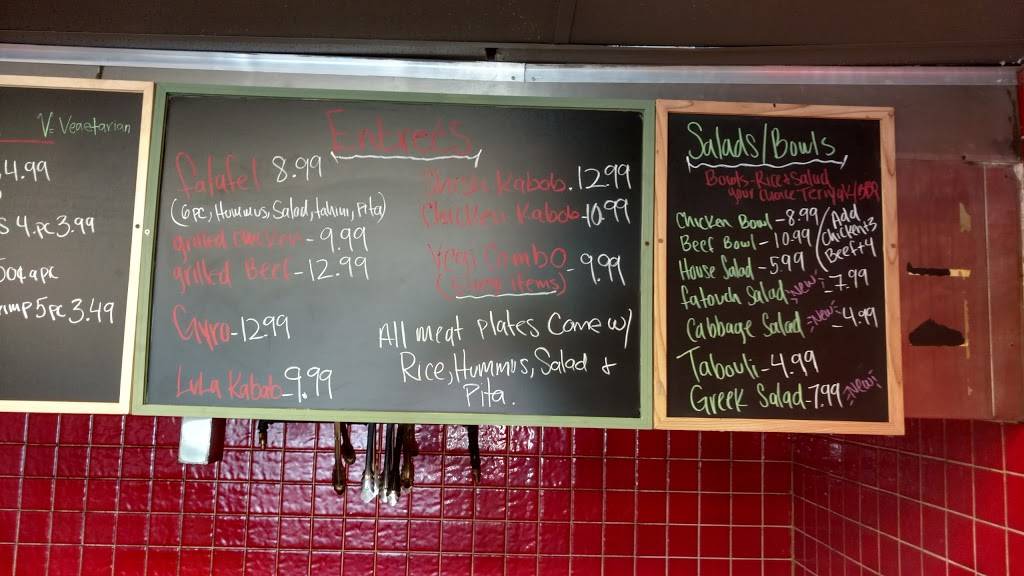 V= Vegetarian
4.99
S 4.pc 3.99
50¢ apc
5pc 3.49
Entreés
falafel 8.99
(6pc, Hummus, Salad, tahini, Pita)
grilled chicken - 9.99
grilled Beef - 12.99
Gyro - 12.99
Lula Kabob - 9.99
Shish Kabob . 12.99
Chicken Kabob - 10.99
Vegi Combo - 9.99
items)
All meat plates Come w/
Rice, Hummus, Salad +
Pita.
Salads/Bowls
Bowls - Rice + Salad
your Choice Teriyaki/BBQ
Chicken Bowl - 8.99
Beef Bowl - 10.99
House Salad - 5.99
(Add
Chicken +3
Beef +4
fatoush Salad New! - 7.99
Cabbage Salad New! - 4.99
Tabouli - 4.99
Greek Salad - 7.99 New!